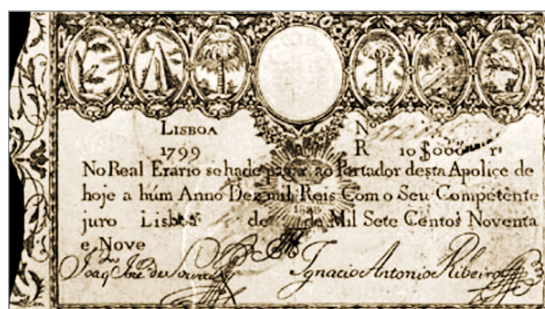 LISBOA Nº
1799 R 10$000 rˢ
No Real Erario se ha de pagar ao Portador desta Apolice de
hoje a húm Anno Dez mil Reis Com o Seu Competente
juro Lisboa de de Mil Sete Centos Noventa
e Nove
Ignacio Antonio Ribeiro